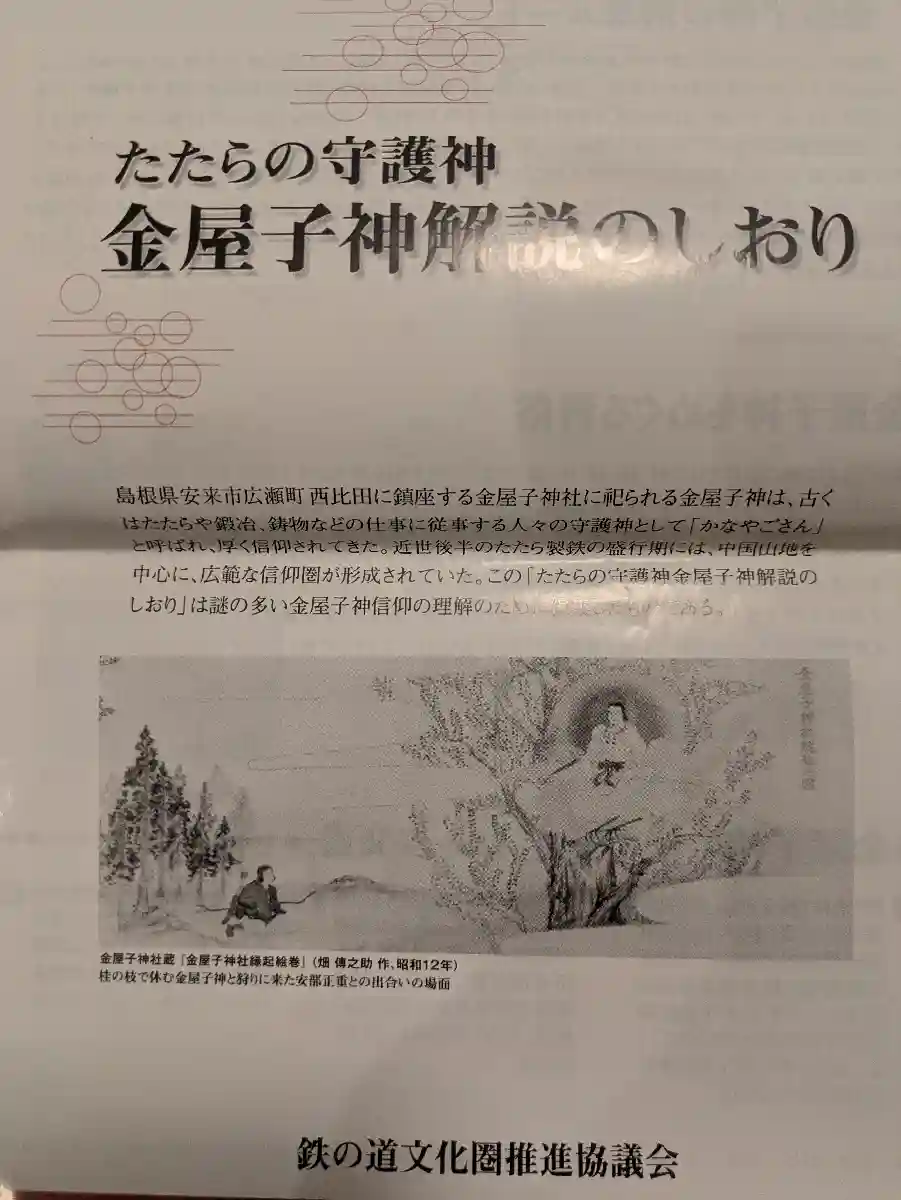 たたらの守護神
金屋子神解説のしおり
島根県安来市広瀬町西比田に鎮座する金屋子神社に祀られる金屋子神は、古く
はたたらや鍛冶、鋳物などの仕事に従事する人々の守護神として「かなやごさん」
と呼ばれ、厚く信仰されてきた。近世後半のたたら製鉄の盛行期には、中国山地を
中心に、広範な信仰圏が形成されていた。この「たたらの守護神金屋子神解説の
しおり」は謎の多い金屋子神信仰の理解のために
である。
金屋子神社蔵『金屋子神社縁起絵巻』(畑 傳之助 作、昭和12年)
桂の枝で休む金屋子神と狩りに来た安部正重との出合いの場面
鉄の道文化圏推進協議会